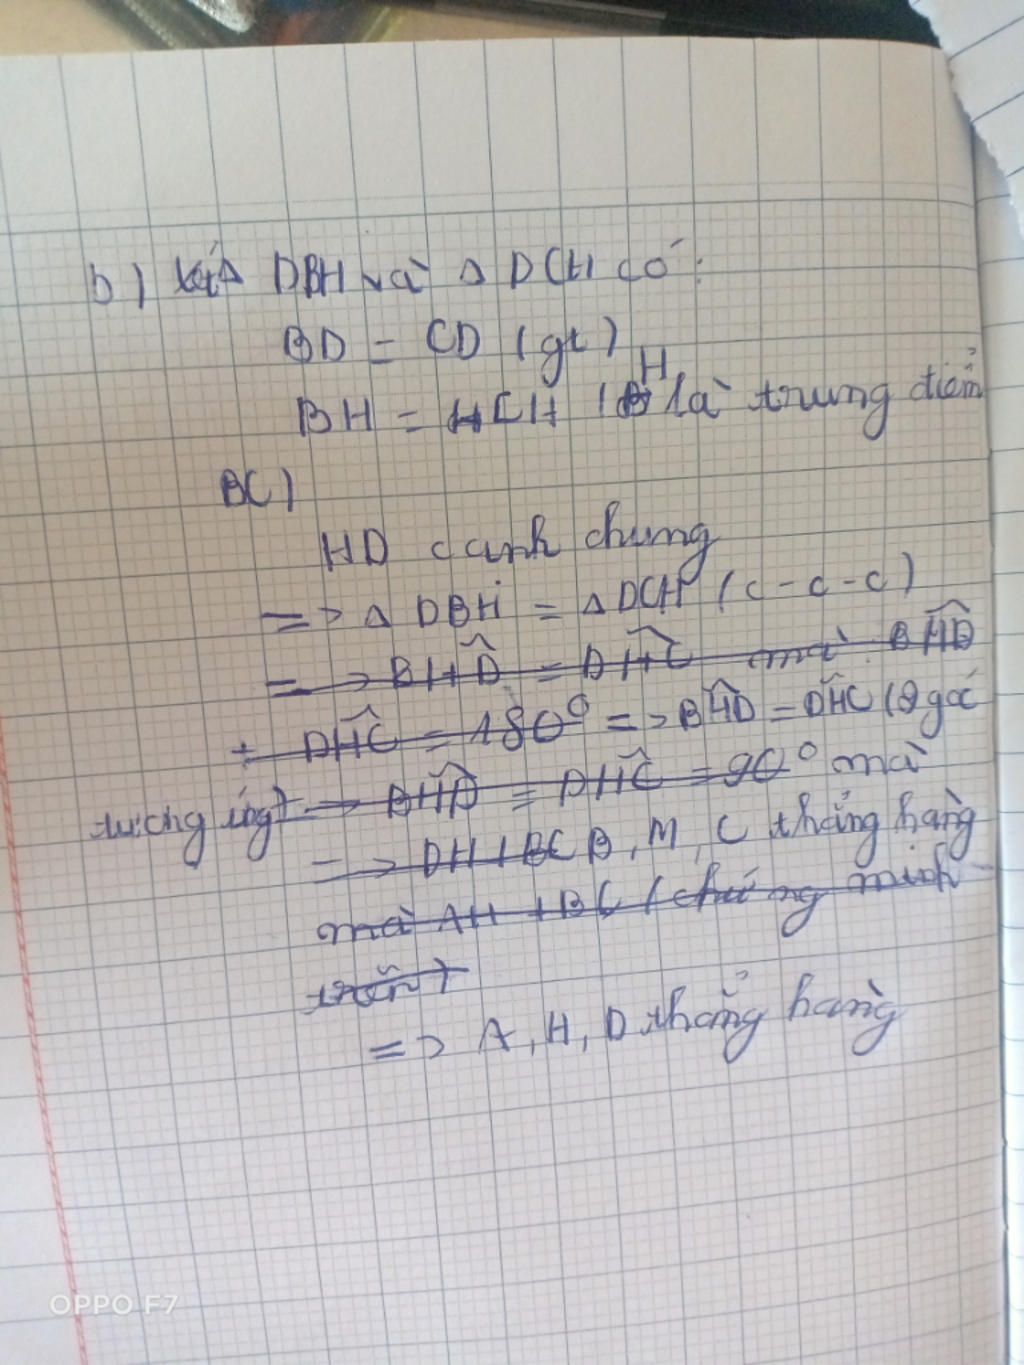 b) Xét Δ DBH và Δ DCH có:
BD = CD (gt)
BH = CH (H là trung điểm
BC)
HD cạnh chung
=> Δ DBH = Δ DCH (c-c-c)
=> BHD = DHC mà BHD
+ DHC = 180° => BHD = DHC (2 góc
tương ứng) => BHD = DHC = 90° mà
=> DH ⊥ BC B, M, C thẳng hàng
mà AH ⊥ BC (chứng minh
trên)
=> A, H, D thẳng hàng
OPPO F7